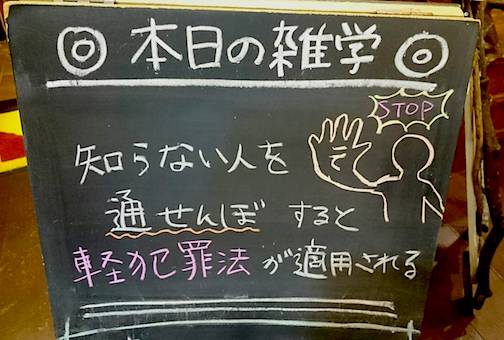 ◎ 本日の雑学 ◎
STOP
知らない人を
通せんぼ すると
軽犯罪法が適用される